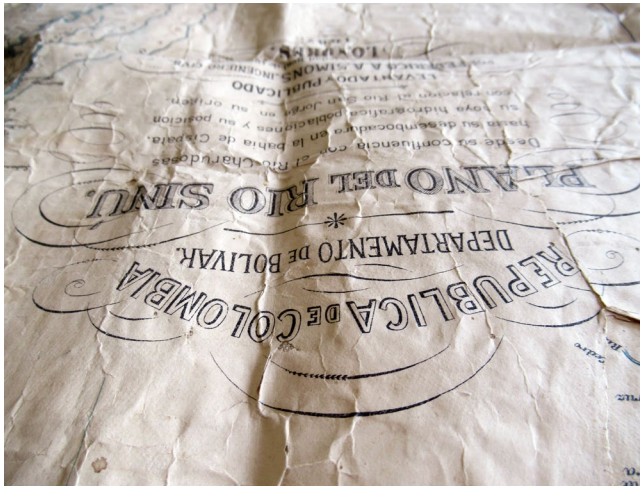 REPUBLICA DE COLOMBIA
DEPARTAMENTO DE BOLIVAR.
PLANO DEL RIO SINÚ.
Desde su confluencia con el Rio Charudosas
hasta su desembocadura en la bahia de Cispata.
su hoya hidrografica poblaciones y su posicion
con relacion al Rio San Jorge en su origen.
LEVANTADO Y PUBLICADO
FEDERICO A. SIMONS. INGENIERO CIVIL
LONDRES.